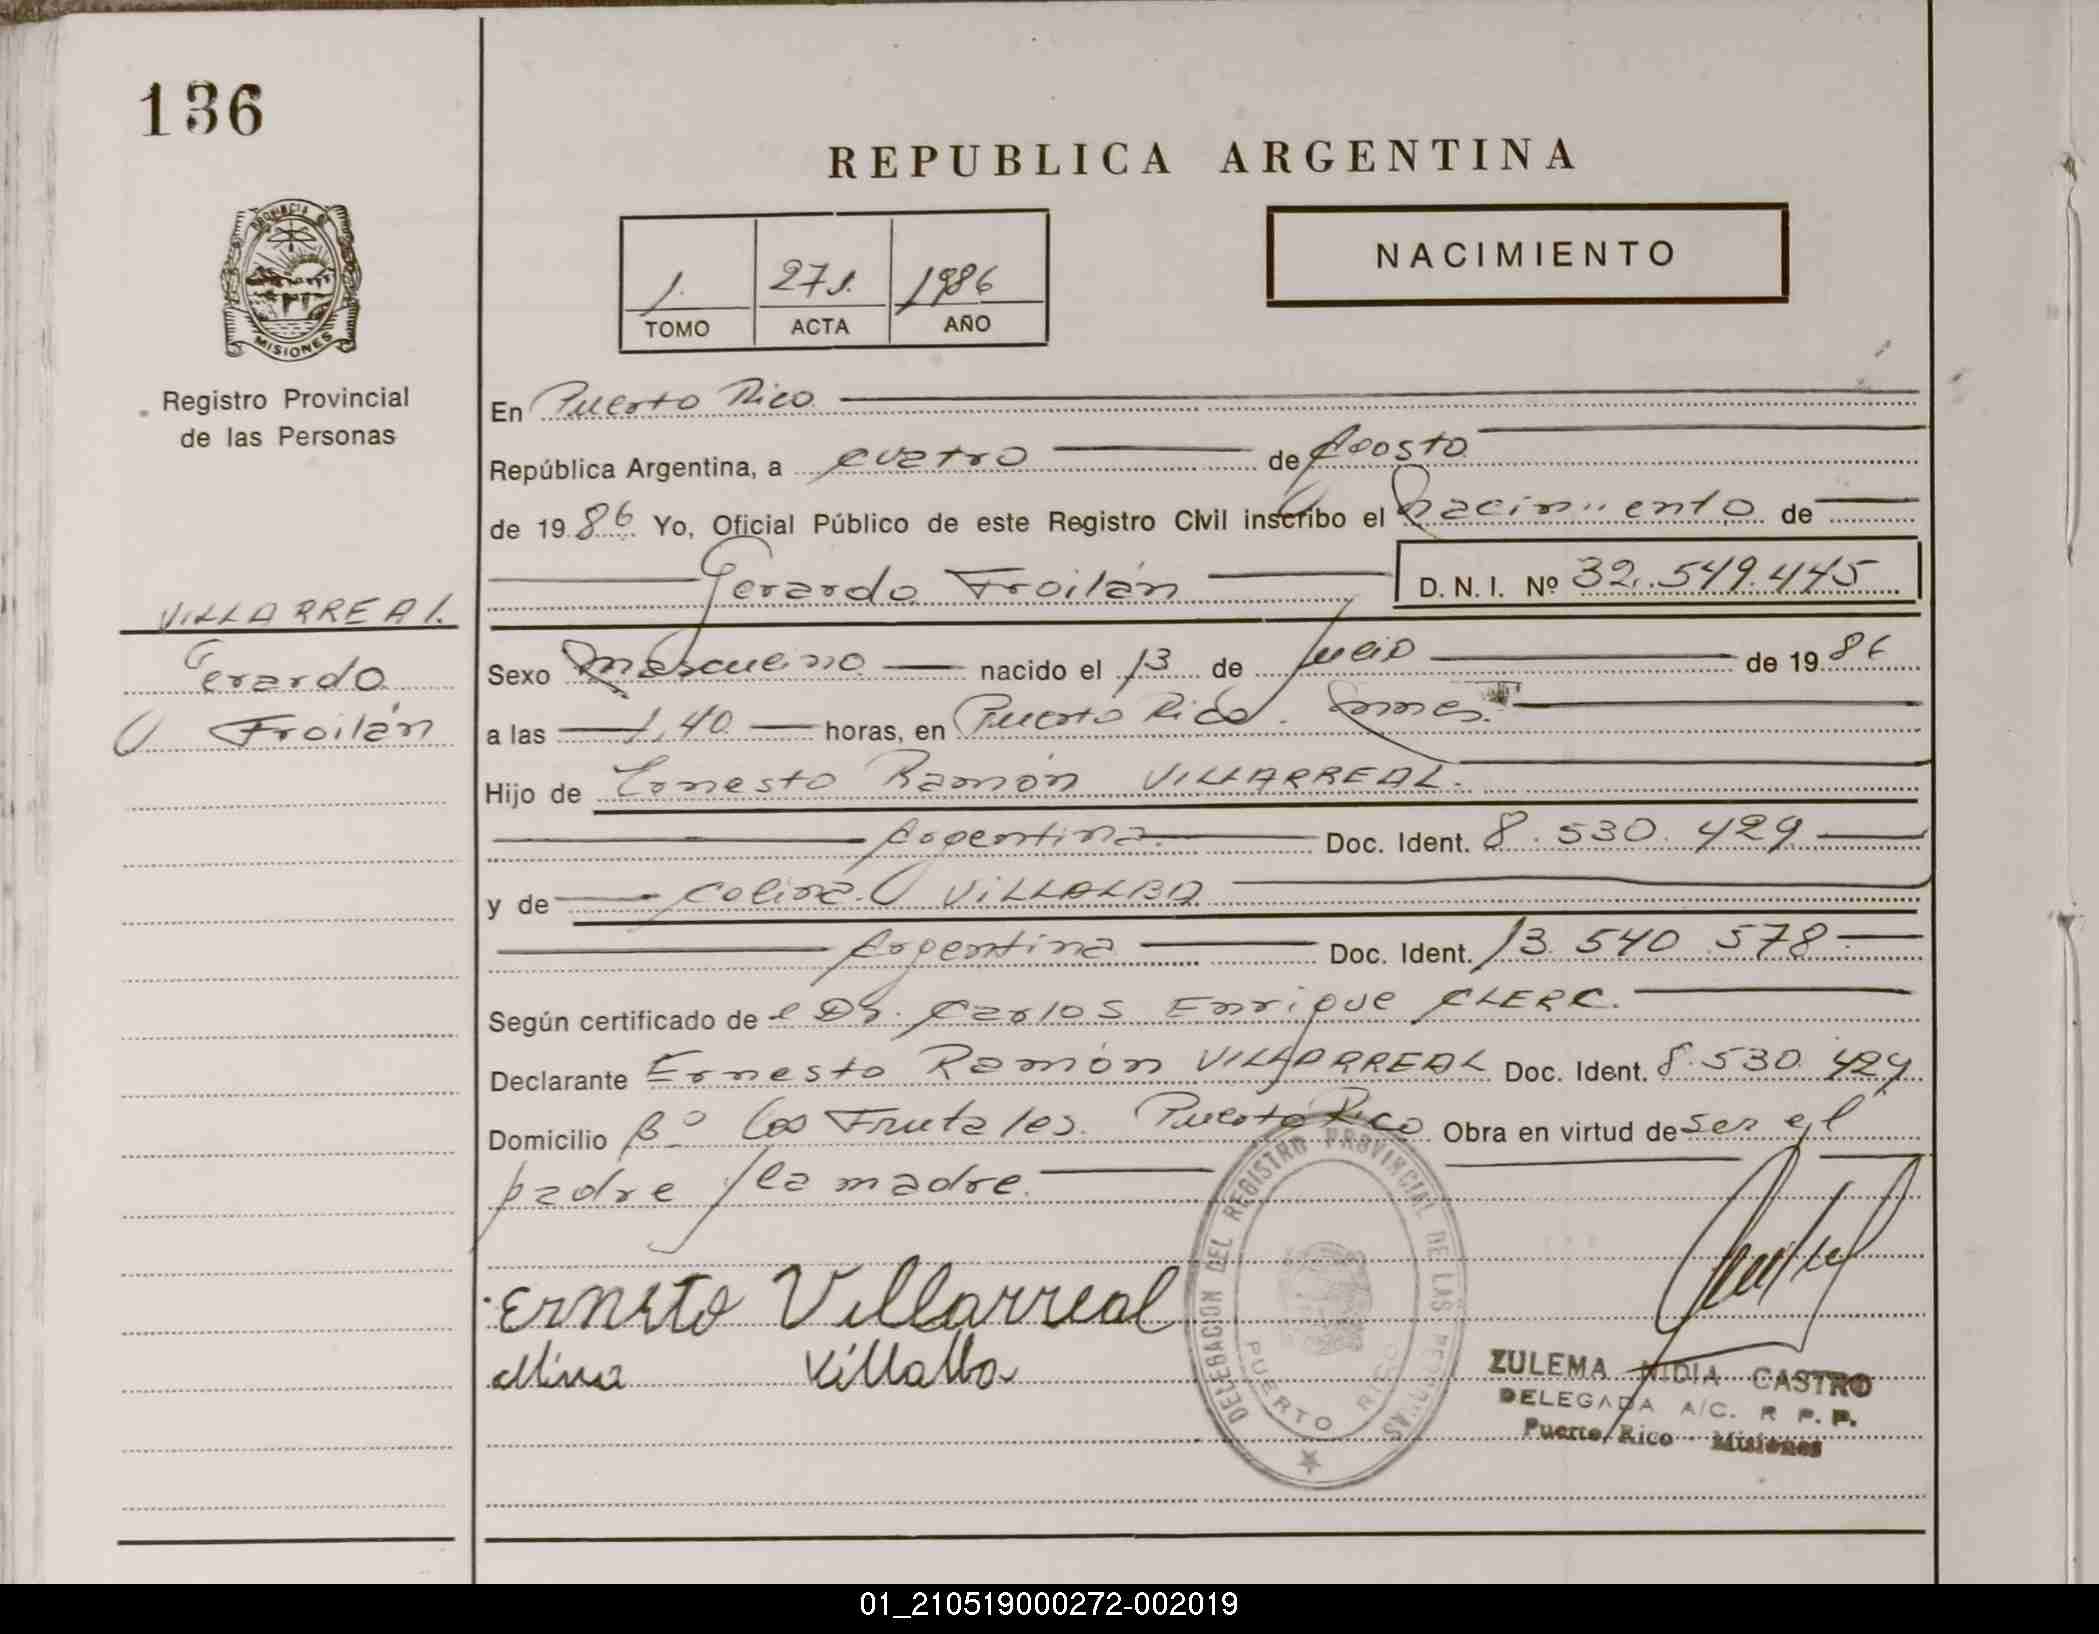 136
REPUBLICA ARGENTINA
NACIMIENTO
1. 271. 1986
TOMO ACTA AÑO
PROVINCIA DE
MISIONES
Registro Provincial
de las Personas
En Puerto Rico
República Argentina, a cuatro de Agosto
de 1986 Yo, Oficial Público de este Registro Civil inscribo el nacimiento de
Gerardo Froilán D.N.I. Nº 32.549.445
VILLARREAL
Gerardo
Froilán
Sexo Masculino nacido el 13 de Julio de 1986
a las 1,40 horas, en Puerto Rico. Mnes.
Hijo de Ernesto Ramón VILLARREAL.
Argentina Doc. Ident. 8.530.429
y de Celina VILLALBA
Argentina Doc. Ident. 13.540.578
Según certificado de el Dr. Carlos Enrique CLERC.
Declarante Ernesto Ramón VILLARREAL Doc. Ident. 8.530.429
Domicilio Bº Los Frutales. Puerto Rico Obra en virtud de ser el
padre y la madre.
DELEGACION DEL REGISTRO PROVINCIAL DE LAS PERSONAS
PUERTO RICO
Ernesto Villarreal
Villalba
ZULEMA NIDIA CASTRO
DELEGADA A/C. R P. P.
Puerto Rico - Misiones
01_210519000272-002019